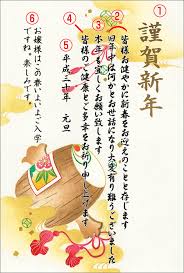 ①
謹賀新年
②
皆様お健やかに新春をお迎えのことと存じます
旧年中は何かとお世話になり大変有り難うございました
③
本年も宜しくお願い致します
④
皆様のご健康とご多幸をお祈り申し上げます
⑤
平成三十年 元旦
⑥
お嬢様はこの春いよいよご入学
ですね。楽しみです。